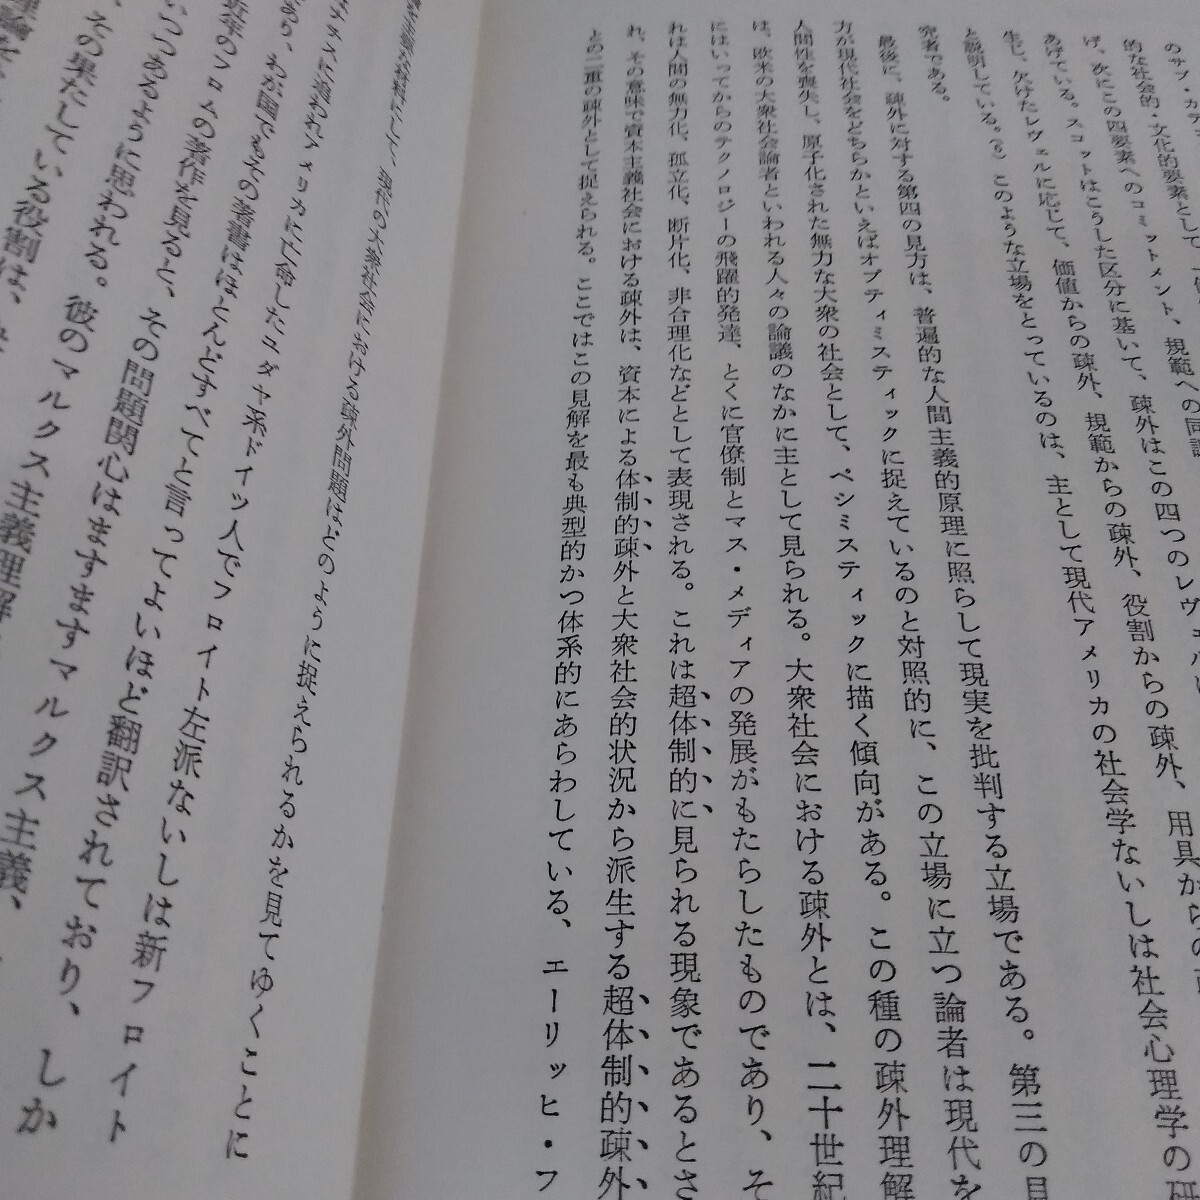 のサブ・カテ
的な社会的・文化的要素として、
げ、次にこの四要素へのコミットメント、規範への同調
あげている。スコットはこうした区分に基いて、疎外はこの四つのレヴェルに
生じ、欠けたレヴェルに応じて、価値からの疎外、規範からの疎外、役割からの疎外、用具からの
と説明している。このような立場をとっているのは、主として現代アメリカの社会学ないしは社会心理学の研
究者である。
最後に、疎外に対する第四の見方は、普遍的な人間主義的原理に照らして現実を批判する立場である。第三の見
方が現代社会をどちらかといえばオプティミスティックに捉えているのと対照的に、この立場に立つ論者は現代を
人間性を喪失し、原子化された無力な大衆の社会として、ペシミスティックに描く傾向がある。この種の疎外理解
は、欧米の大衆社会論者といわれる人々の論議のなかに主として見られる。大衆社会における疎外とは、二十世紀
にはいってからのテクノロジーの飛躍的発達、とくに官僚制とマス・メディアの発展がもたらしたものであり、そ
れは人間の無力化、孤立化、断片化、非合理化などとして表現される。これは超体制的に見られる現象であるとさ
れ、その意味で資本主義社会における疎外は、資本による体制的疎外と大衆社会的状況から派生する超体制的疎外
との二重の疎外として捉えられる。ここではこの見解を最も典型的かつ体系的にあらわしている、エーリッヒ・フ
現代の大衆社会における疎外問題はどのように捉えられるかを見てゆくことに
ナチスに追われアメリカに亡命したユダヤ系ドイツ人でフロイト左派ないしは新フロイト
あり、わが国でもその著書はほとんどすべてと言ってよいほど翻訳されており、しか
近年のフロムの著作を見ると、その問題関心はますますマルクス主義、
いつつあるように思われる。彼のマルクス主義理解
、その果たしている役割は、
理論を